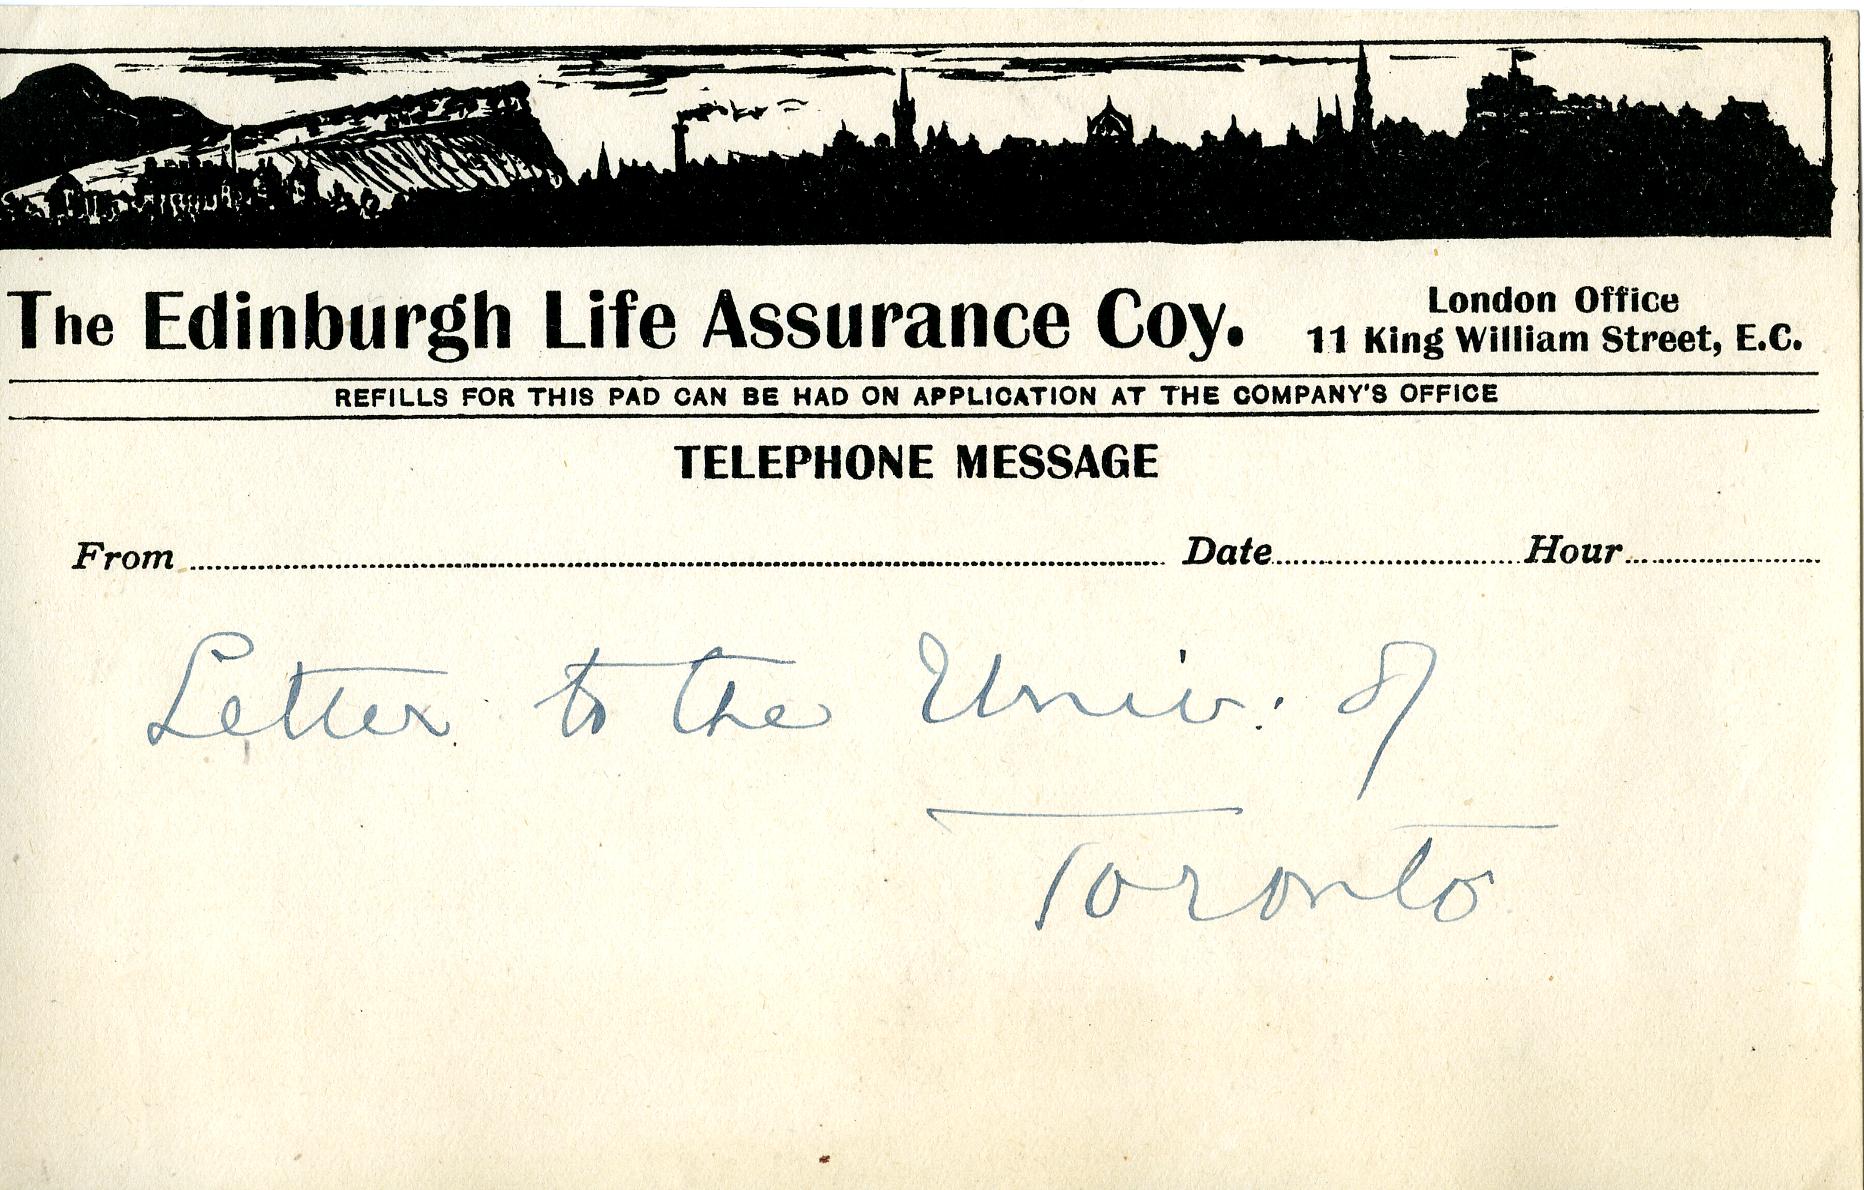 The Edinburgh Life Assurance Coy.
London Office
11 King William Street, E.C.
REFILLS FOR THIS PAD CAN BE HAD ON APPLICATION AT THE COMPANY'S OFFICE
TELEPHONE MESSAGE
From Date Hour
Letter to the Univ. of
Toronto